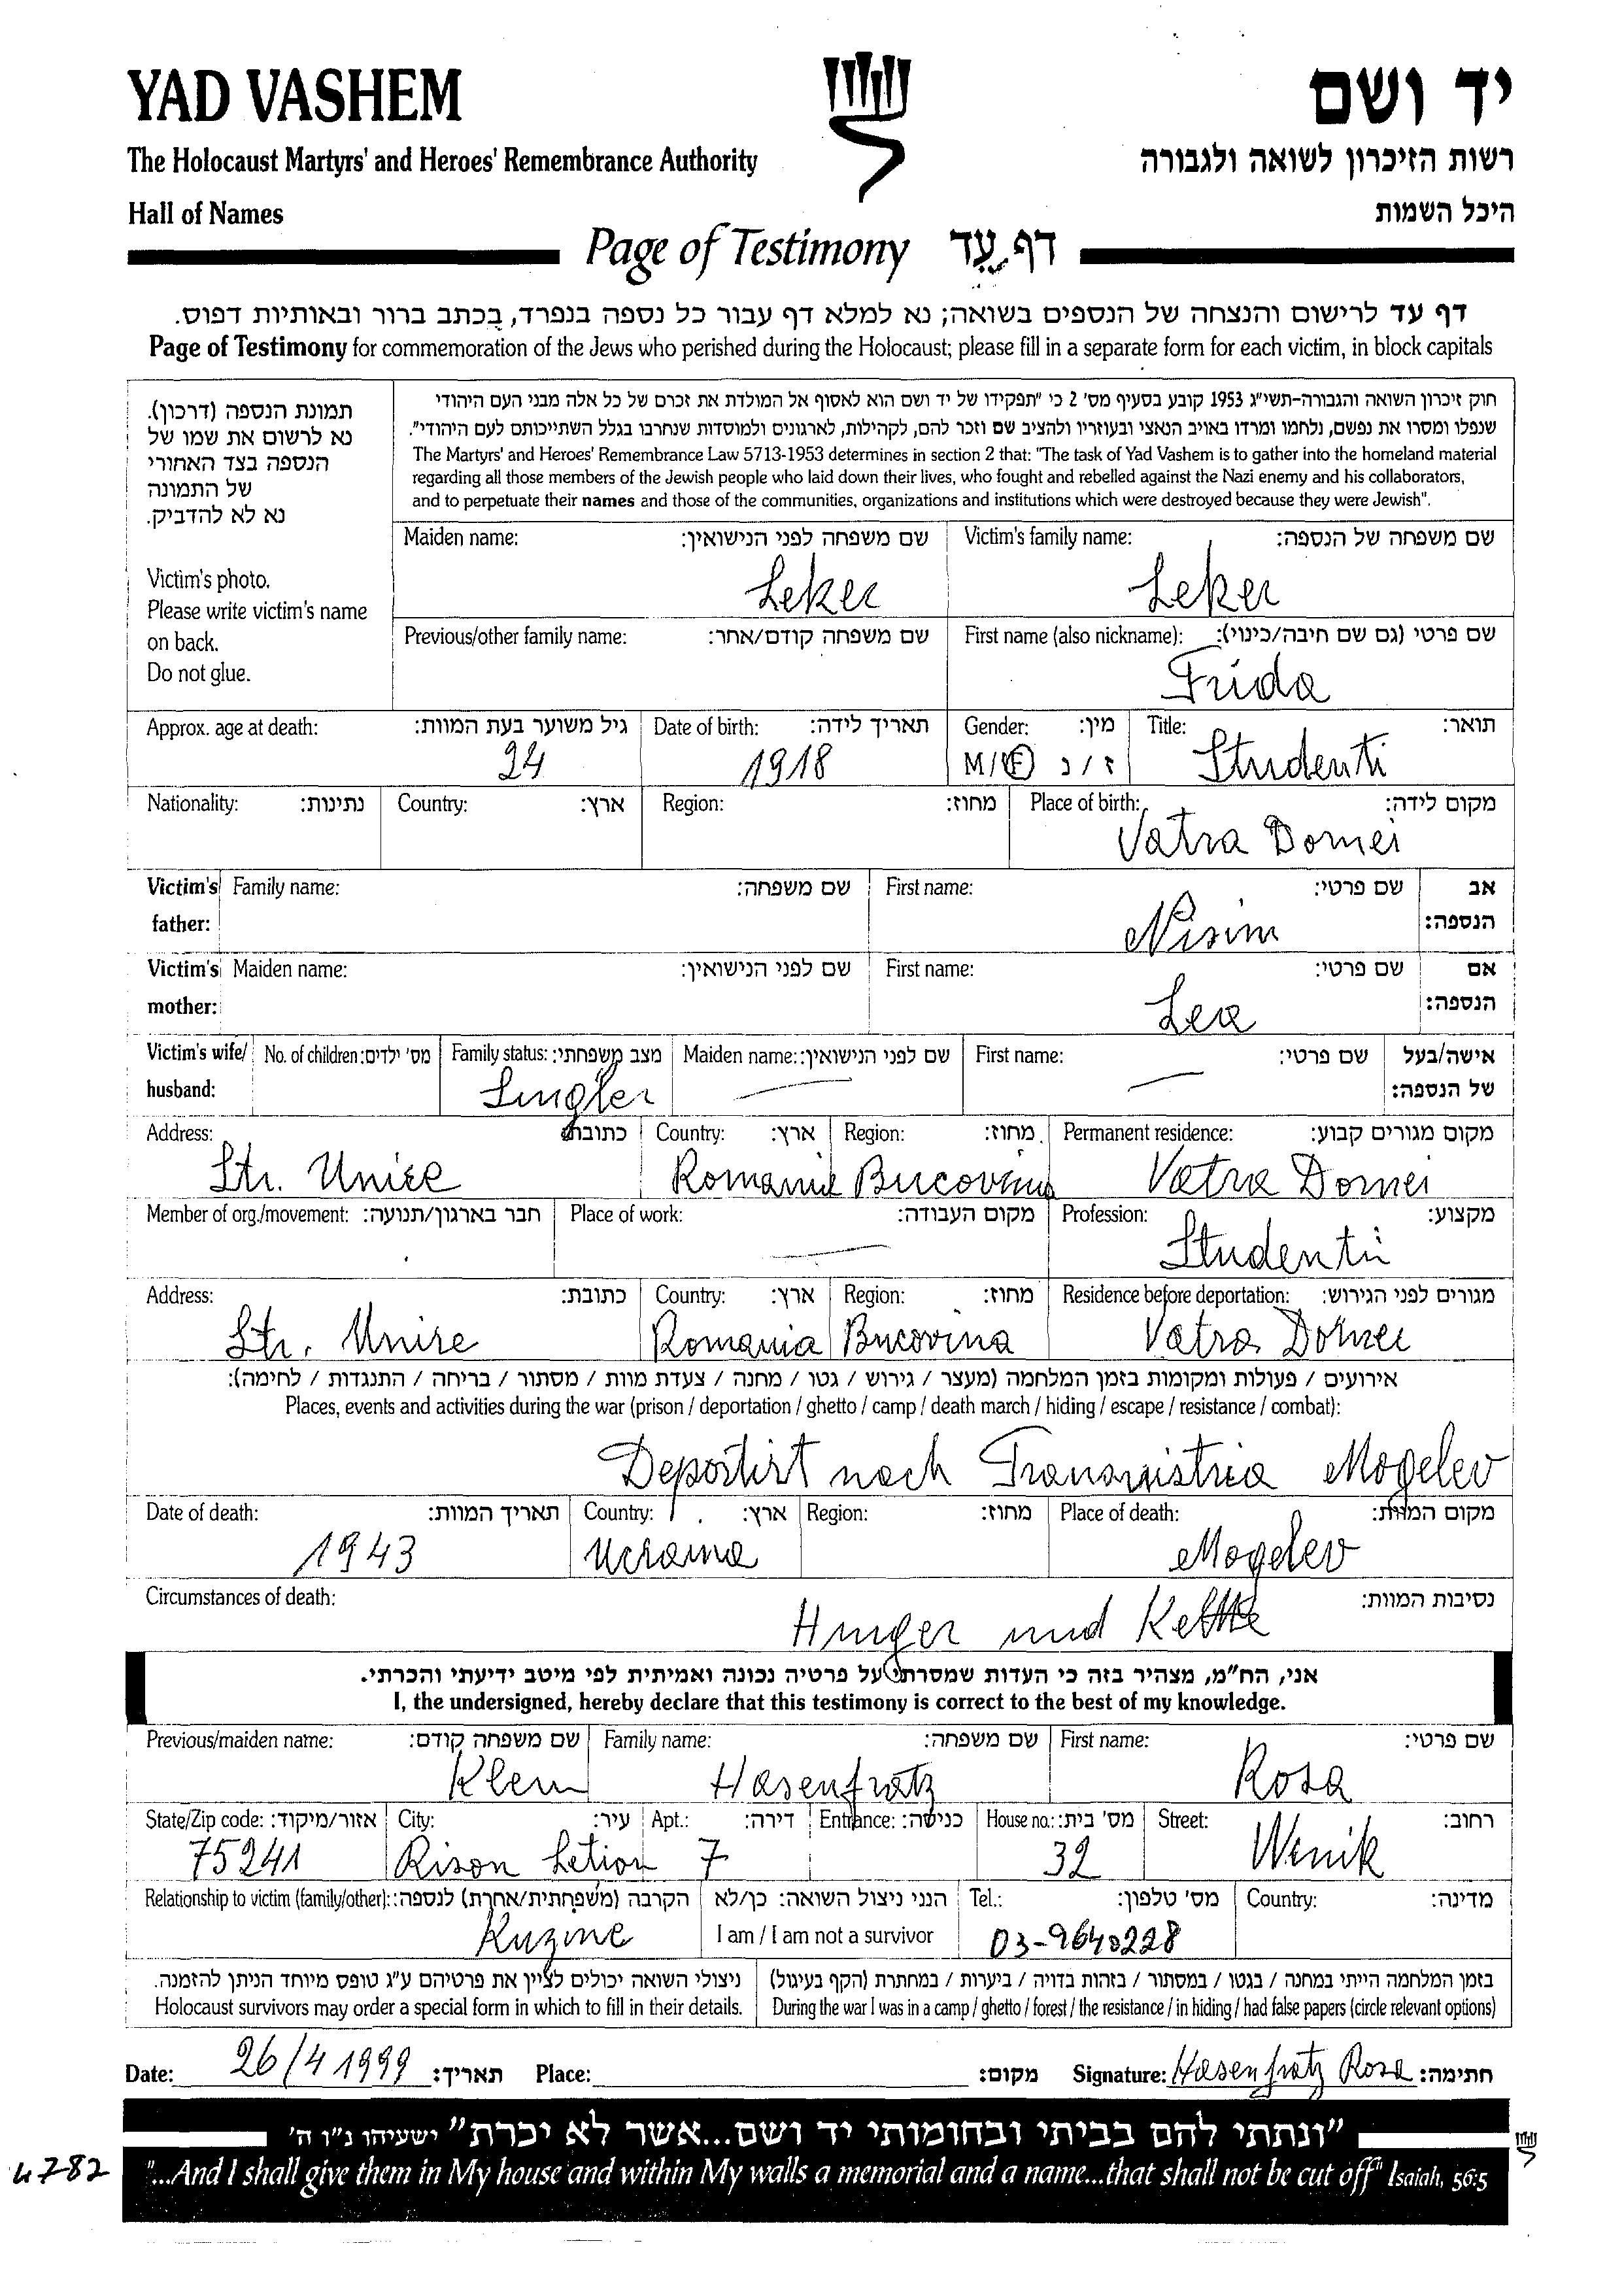 YAD VASHEM
יד ושם
The Holocaust Martyrs' and Heroes' Remembrance Authority
רשות הזיכרון לשואה ולגבורה
Hall of Names
היכל השמות
Page of Testimony דף עֵד
דף עד לרישום והנצחה של הנספים בשואה; נא למלא דף עבור כל נספה בנפרד, בכתב ברור ובאותיות דפוס.
Page of Testimony for commemoration of the Jews who perished during the Holocaust; please fill in a separate form for each victim, in block capitals
תמונת הנספה (דרכון).
נא לרשום את שמו של
הנספה בצד האחורי
של התמונה
נא לא להדביק.
Victim's photo.
Please write victim's name
on back.
Do not glue.
חוק זיכרון השואה והגבורה-תשי״ג 1953 קובע בסעיף מס' 2 כי ״תפקידו של יד ושם הוא לאסוף אל המולדת את זכרם של כל אלה מבני העם היהודי
שנפלו ומסרו את נפשם, נלחמו ומרדו באויב הנאצי ובעוזריו ולהציב שם וזכר להם, לקהילות, לארגונים ולמוסדות שנחרבו בגלל השתייכותם לעם היהודי״.
The Martyrs' and Heroes' Remembrance Law 5713-1953 determines in section 2 that: "The task of Yad Vashem is to gather into the homeland material
regarding all those members of the Jewish people who laid down their lives, who fought and rebelled against the Nazi enemy and his collaborators,
and to perpetuate their names and those of the communities, organizations and institutions which were destroyed because they were Jewish".
Maiden name: שם משפחה לפני הנישואין:
Leker
Victim's family name: שם משפחה של הנספה:
Leker
Previous/other family name: שם משפחה קודם/אחר:
First name (also nickname): שם פרטי (גם שם חיבה/כינוי):
Frida
Approx. age at death: גיל משוער בעת המוות:
24
Date of birth: תאריך לידה:
1918
Gender: מין:
M/F ז / נ
Title: תואר:
Studenti
Nationality: נתינות:
Country: ארץ:
Region: מחוז:
Place of birth: מקום לידה:
Vatra Dornei
Victim's father: Family name: שם משפחה:
First name: שם פרטי: אב הנספה:
Nisim
Victim's mother: Maiden name: שם לפני הנישואין:
First name: שם פרטי: אם הנספה:
Lea
Victim's wife/ husband: No. of children: מס' ילדים:
Family status: מצב משפחתי:
Lingler
Maiden name: שם לפני הנישואין:
First name: שם פרטי: אישה/בעל של הנספה:
Address: כתובת:
Str. Unire
Country: ארץ:
Romania
Region: מחוז:
Bucovina
Permanent residence: מקום מגורים קבוע:
Vatra Dornei
Member of org./movement: חבר בארגון/תנועה:
Place of work: מקום העבודה:
Profession: מקצוע:
Studenti
Address: כתובת:
Str. Unire
Country: ארץ:
Romania
Region: מחוז:
Bucovina
Residence before deportation: מגורים לפני הגירוש:
Vatra Dornei
אירועים / פעולות ומקומות בזמן המלחמה (מעצר / גירוש / גטו / מחנה / צעדת מוות / מסתור / בריחה / התנגדות / לחימה):
Places, events and activities during the war (prison / deportation / ghetto / camp / death march / hiding / escape / resistance / combat):
Deportirt nach Transnistria Mogelev
Date of death: תאריך המוות:
1943
Country: ארץ:
Ucraina
Region: מחוז:
Place of death: מקום המוות:
Mogelev
Circumstances of death: נסיבות המוות:
Hunger und
אני, הח״מ, מצהיר בזה כי העדות שמסרתי על פרטיה נכונה ואמיתית לפי מיטב ידיעתי והכרתי.
I, the undersigned, hereby declare that this testimony is correct to the best of my knowledge.
Previous/maiden name: שם משפחה קודם:
Klein
Family name: שם משפחה:
Hasenfratz
First name: שם פרטי:
Rosa
State/Zip code: אזור/מיקוד:
75241
City: עיר:
Rison Letion
Apt.: דירה:
7
Entrance: כניסה:
House no.: מס' בית:
32
Street: רחוב:
Wenik
Relationship to victim (family/other): הקרבה (משפחתית/אחרת) לנספה:
Kuzine
הנני ניצול השואה: כן/לא
I am / I am not a survivor
Tel.: מס' טלפון:
03-9640228
Country: מדינה:
ניצולי השואה יכולים לציין את פרטיהם ע״ג טופס מיוחד הניתן להזמנה.
Holocaust survivors may order a special form in which to fill in their details.
בזמן המלחמה הייתי במחנה / בגטו / במסתור / בזהות בדויה / ביערות / במחתרת (הקף בעיגול)
During the war I was in a camp / ghetto / forest / the resistance / in hiding / had false papers (circle relevant options)
Date: 26/4 1999 תאריך: Place: מקום: Signature: Hasenfratz Rosa חתימה:
״ונתתי להם בביתי ובחומותי יד ושם...אשר לא יכרת״ ישעיהו נ״ו ה'
"...And I shall give them in My house and within My walls a memorial and a name...that shall not be cut off" Isaiah, 56:5
4782